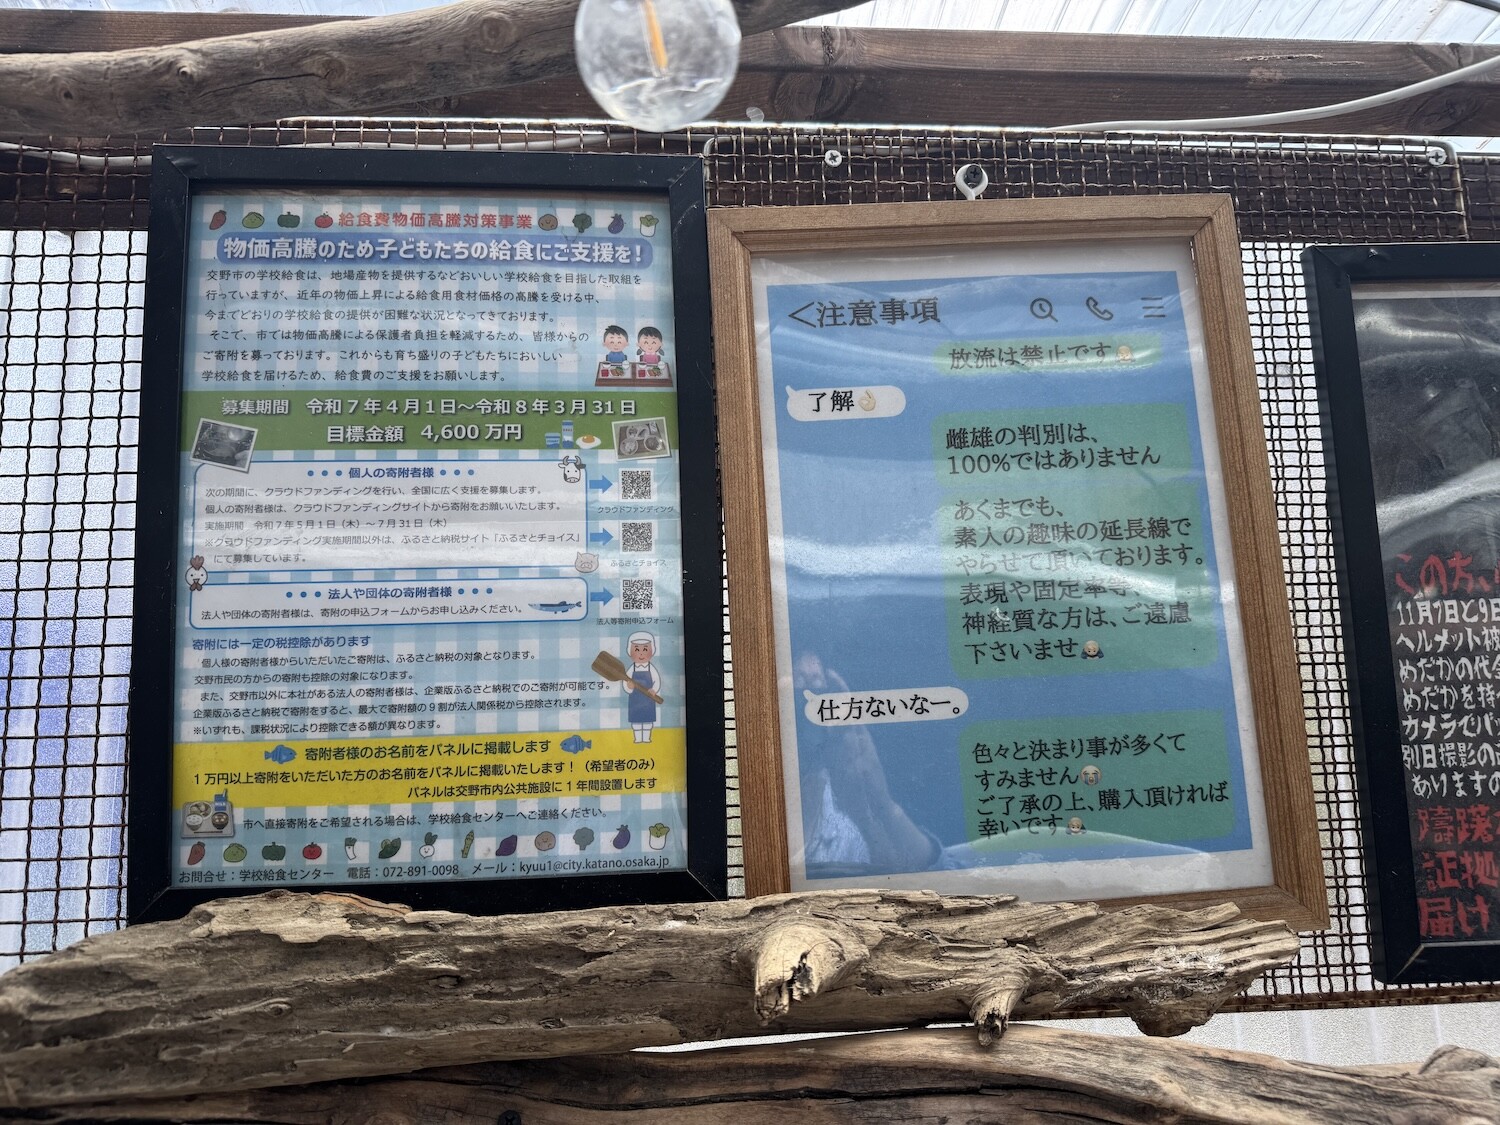 給食費物価高騰対策事業
物価高騰のため子どもたちの給食にご支援を！
交野市の学校給食は、地場産物を提供するなどおいしい学校給食を目指した取組を
行っていますが、近年の物価上昇による給食用食材価格の高騰を受ける中、
今までどおりの学校給食の提供が困難な状況となってきております。
そこで、市では物価高騰による保護者負担を軽減するため、皆様からの
ご寄附を募っております。これからも育ち盛りの子どもたちにおいしい
学校給食を届けるため、給食費のご支援をお願いします。
募集期間 令和７年４月１日～令和８年３月31日
目標金額 4,600万円
・・・個人の寄附者様・・・
次の期間に、クラウドファンディングを行い、全国に広く支援を募集します。
個人の寄附者様は、クラウドファンディングサイトから寄附をお願いいたします。
実施期間 令和７年５月１日（木）～７月31日（木）
※クラウドファンディング実施期間以外は、ふるさと納税サイト「ふるさとチョイス」
にて募集しています。
クラウドファンディング
ふるさとチョイス
・・・法人や団体の寄附者様・・・
法人や団体の寄附者様は、寄附の申込フォームからお申し込みください。
法人等寄附申込フォーム
寄附には一定の税控除があります
個人様の寄附者様からいただいたご寄附は、ふるさと納税の対象となります。
交野市民の方からの寄附も控除の対象になります。
また、交野市以外に本社がある法人の寄附者様は、企業版ふるさと納税でのご寄附が可能です。
企業版ふるさと納税で寄附をすると、最大で寄附額の９割が法人関係税から控除されます。
※いずれも、課税状況により控除できる額が異なります。
寄附者様のお名前をパネルに掲載します
１万円以上寄附をいただいた方のお名前をパネルに掲載いたします！（希望者のみ）
パネルは交野市内公共施設に１年間設置します
市へ直接寄附をご希望される場合は、学校給食センターへご連絡ください。
お問合せ：学校給食センター 電話：072-891-0098 メール：kyuu1@city.katano.osaka.jp
＜注意事項
放流は禁止です
了解👌
雌雄の判別は、
100%ではありません
あくまでも、
素人の趣味の延長線で
やらせて頂いております。
表現や固定率等、
神経質な方は、ご遠慮
下さいませ
仕方ないなー。
色々と決まり事が多くて
すみません😭
ご了承の上、購入頂ければ
幸いです
この方、
11月7日と9日
ヘルメット被
めだかの代金
めだかを持
カメラでバッ
別日撮影の
ありますの
躊躇
証拠
届け